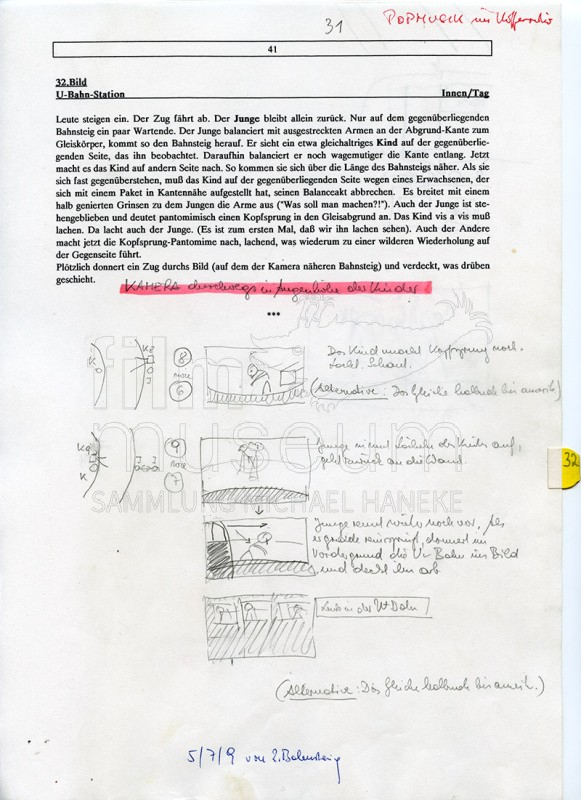 31
POPMUSIK im Kofferradio
41
32.Bild
U-Bahn-Station Innen/Tag
Leute steigen ein. Der Zug fährt ab. Der Junge bleibt allein zurück. Nur auf dem gegenüberliegenden
Bahnsteig ein paar Wartende. Der Junge balanciert mit ausgestreckten Armen an der Abgrund-Kante zum
Gleiskörper, kommt so den Bahnsteig herauf. Er sieht ein etwa gleichaltriges Kind auf der gegenüberlie-
genden Seite, das ihn beobachtet. Daraufhin balanciert er noch wagemutiger die Kante entlang. Jetzt
macht es das Kind auf andern Seite nach. So kommen sie sich über die Länge des Bahnsteigs näher. Als
sie sich fast gegenüberstehen, muß das Kind auf der gegenüberliegenden Seite wegen eines Erwachsenen, der
sich mit einem Paket in Kantennähe aufgestellt hat, seinen Balanceakt abbrechen. Es breitet mit einem
halb genierten Grinsen zu dem Jungen die Arme aus ("Was soll man machen?!"). Auch der Junge ist ste-
hengeblieben und deutet pantomimisch einen Kopfsprung in den Gleisabgrund an. Das Kind vis a vis muß
lachen. Da lacht auch der Junge. (Es ist zum ersten Mal, daß wir ihn lachen sehen). Auch der Andere
macht jetzt die Kopfsprung-Pantomime nach, lachend, was wiederum zu einer wilderen Wiederholung auf
der Gegenseite führt.
Plötzlich donnert ein Zug durchs Bild (auf dem der Kamera näheren Bahnsteig) und verdeckt, was drüben
geschieht.
KAMERA durchwegs in Augenhöhe der Kinder
***
film
museum
SAMMLUNG MICHAEL HANEKE
K
8
6
Das Kind macht Kopfsprung nach.
Lacht. Schaut.
(Alternative: Das Gleiche halbnah bis amerik.)
32
K
J
9
7
Junge nimmt
geht zurück an die Wand
Junge rennt wieder nach vor, Als
er gerade donnert im
Vordergrund die U-Bahn ins Bild
und deckt ihn ab
Leute in der U-Bahn
(Alternative: Das Gleiche halbnah bis amerik.)
5/7/9 von 2. Bahnsteig